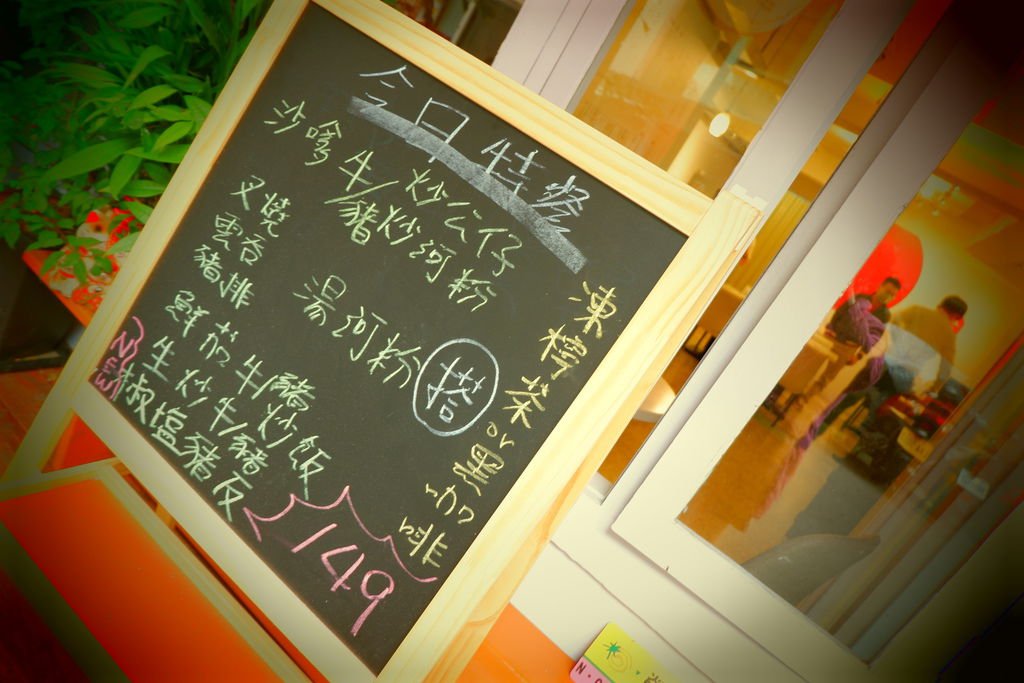 今日特餐
沙嗲牛/炒公仔
豬炒河粉
叉燒
雲吞
豬排
湯河粉
鮮茄牛豬
生炒牛/豬炒飯
NEW 椒塩豬反
搭
凍檸茶or黑咖啡
149